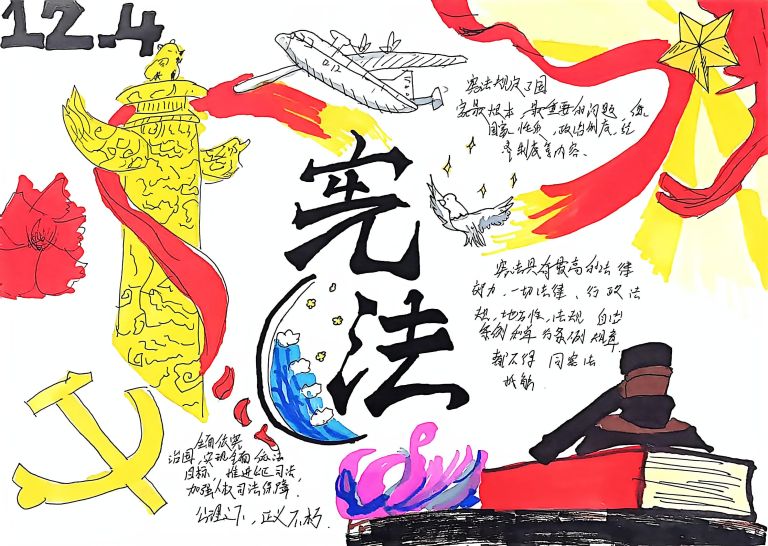 12.4
宪法
宪法规定了国
家最根本、最重要的问题,
国家性质,政治制度,经
济制度等内容.
宪法具有最高的法律
效力,一切法律、行政法
规,地方性,法规 自治
条例和单行条例 规章
都不得 同宪法
抵触
全面依宪
治国,实现全面依法
目标,推进 司法,
加强人权司法保障.
公理之下,正义不朽.